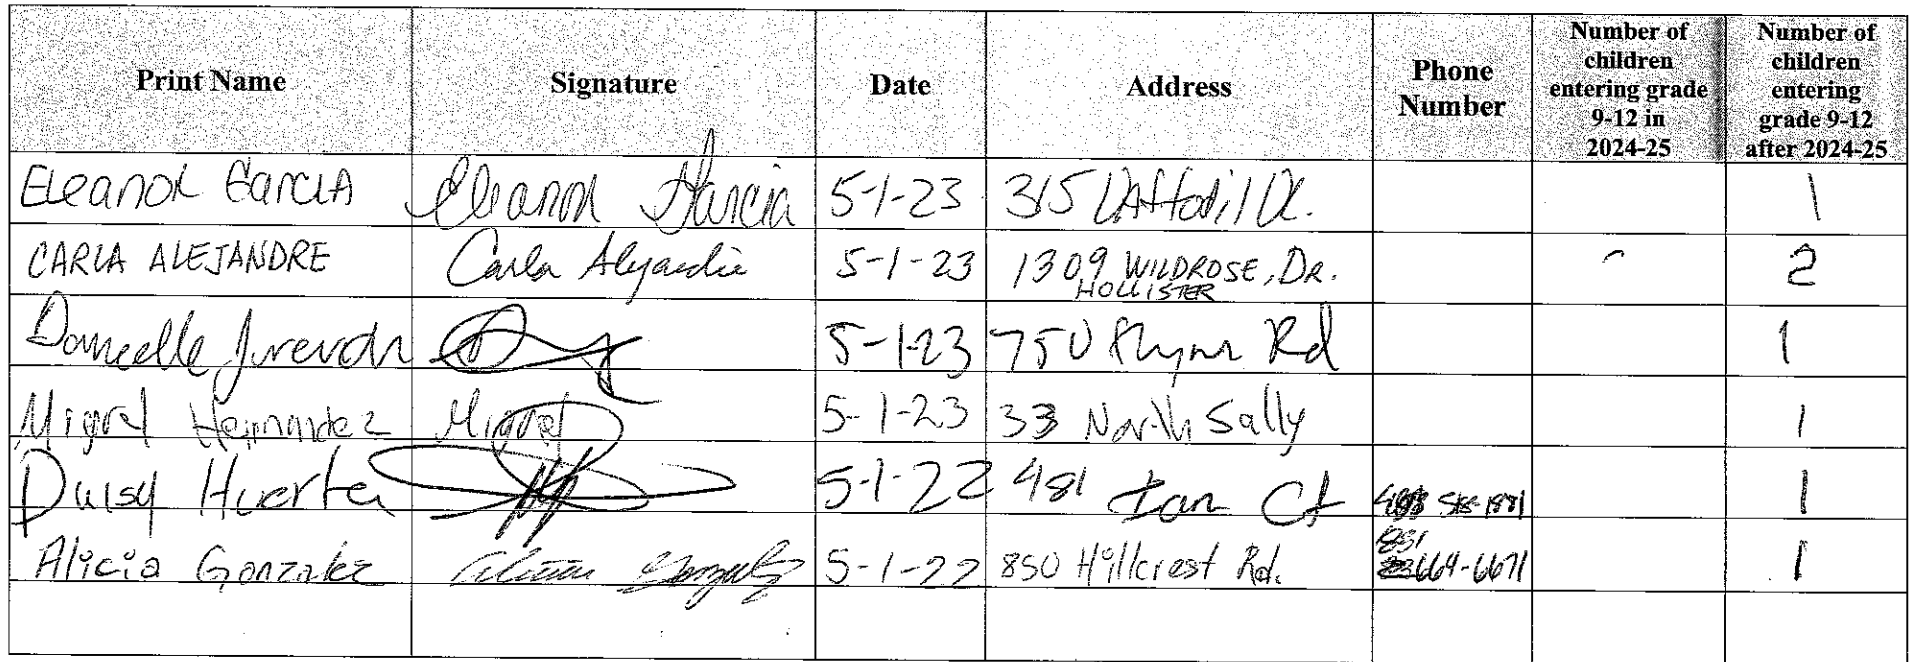 Print Name Signature Date Address Phone Number Number of children entering grade 9-12 in 2024-25 Number of children entering grade 9-12 after 2024-25
Eleanor Garcia Eleanor Garcia 5-1-23 315 Daffodil Dr. 1
CARLA ALEJANDRE Carla Alejandre 5-1-23 1309 WILDROSE, DR. 2
HOLLISTER
Danielle 5-1-23 750 Flynn Rd 1
Miguel Hernandez Miguel 5-1-23 33 North Sally 1
Daisy Huerta 5-1-22 481 Ian Ct 1
Alicia Gonzalez Alicia Gonzalez 5-1-22 850 Hillcrest Rd. 831 664-6671 1